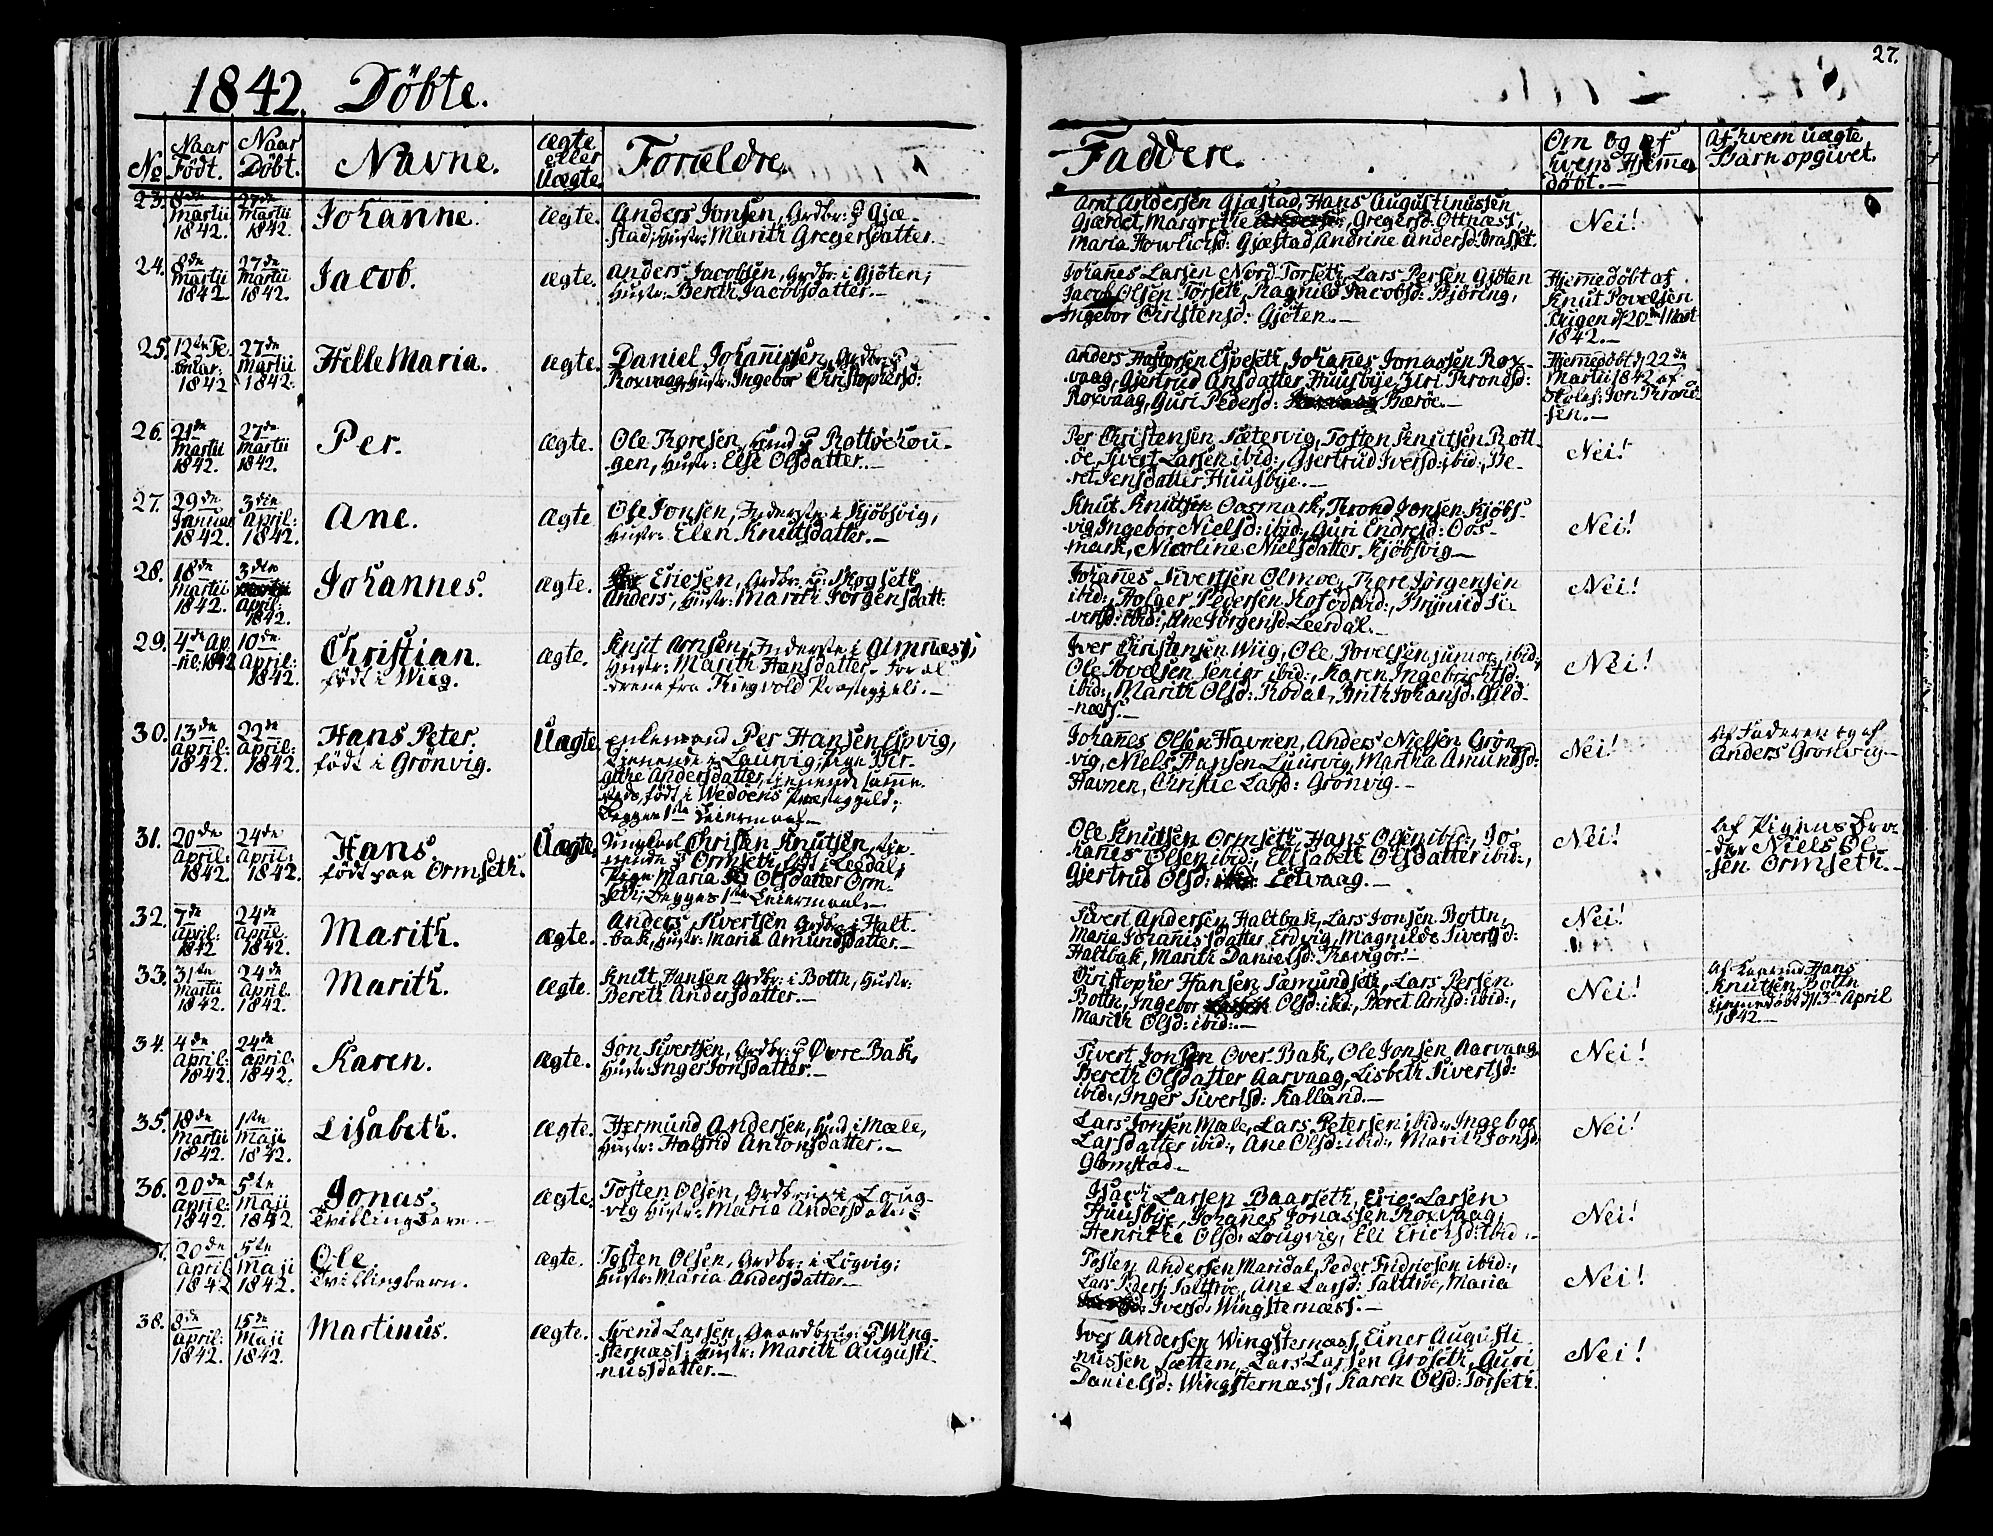 27.
1842. Döbte.
No
Naar Födt.
Naar Döbt.
Navne.
Ægte eller Uægte.
Forældre.
Faddere.
Om og af hvem Hjemme döbt.
Af hvem uægte Barn opgivet.
23. 8de Martii 1842. 27de Martii 1842. Johanne. Ægte.
Anders Jonsen, Grdbr: Gjæ-
stad, Hustr: Marith Gregersdatter.
Arnt Andersen Gjæstad, Hans Augustinussen
Gjærdet, Margrethe Gregersd: Ottnæss,
Maria Gjæstad, Andrine Andersd: Brasset.
Nei!
24. 8de Martii 1842. 27de Martii 1842. Jacob. ægte.
Anders Jacobsen, Grdbr: i Gjöten;
Hustr: Bereth Jacobsdatter.
Johañes Larsen Nord Torseth, Lars Persen Gjöten
Jacob Olsen Torseth, Ragnild Jacobsd: Björing,
Ingebor Christensd: Gjöten.
Hjemmedöbt af
Knut Povelsen
20de Mart
1842.
25. 12te Febrüar: 1842 27de Martii 1842. Hille Maria. ægte.
Daniel Johañissen, Grdbr:
Roxvaag, Hustr: Ingebor Christophersd:
Anders Espeseth, Johañes Jonassen Rox-
vaag, Gjertrud Ansdatter Huusbye, Siri Tronds:
Roxvaag, Guri Pedersd: Bæröe.
Hjemedöbt d 22de
Martii 1842 af
Skoles: Jon Trond-
sen.
26. 21de Martii 1842. 27de Martii 1842. Per. ægte.
Ole Toresen, Rottöehou-
gen, Hustr: Else Olsdatter.
Per Christensen Sætervig, Tosten Knutsen Rott-
öe, Sivert Larsen ibid:, Gjertrud Iversd: ibid:, Be-
ret Jensdatter Huusbye.
Nei!
27. 29de Januar 1842. 3die April: 1842. Ane. Ægte.
Ole Jonsen, Inderste i Kjöbsvig,
Hustr: Elen Knutsdatter.
Knut Knutsen Oosmark, Trond Jonsen Kjöbs-
vig, Ingebor Nielsd: ibid:, Guri Endresd: Oos-
mark, Nicoline Nielsdatter Kjöbsvig
Nei!
28. 18de Martii 1842. 3die April: 1842. Johannes. ægte.
Ericsen, Grdbr: Skogseth
Anders, Hustr: Marith Jörgensdatt:
Johañes Sivertsen Olmoe, Tore Jörgensen
ibid:, Holger Pedersen ibid:, Brynild Si-
vertsd: ibid:, Ane Jörgensd: Leerdal.
Nei!
29. 4de April: 1842 10de April: 1842. Christian. födt i Wiig. ægte.
Knut Arnsen, Inderste i Almnæss,
Hustr: Marith Hansdatter. Foræl-
drene fra Tingvold Præstegjeld.
Iver Christensen Wiig, Ole Povelsen junior ibid:,
Ole Povelsen Senior ibid:, Karen Ingebrichtsd:
ibid:, Marith Olsd: Rodal, Brith Johansd: Gild-
næss.
Nei!
30. 13de April: 1842. 22de April: 1842. Hans Peter. födt i Grönvig. Uægte.
Enkemand Per Hansen Espvig,
tienende i Laurvig, Pige Bir-
githe Andersdatter, tienende samme-
steds, födt i Wedöens Præstegjeld;
Begges 1ste Leiermaal.
Johañes Olsen Havnen, Anders Nielsen Grön-
vig, Niels Hansen Luurvig, Martha Amundsd:
Havnen, Christie Larsd: Grönvig.
Nei!
Af Faderen og af
Anders Grönvig
31. 20de April: 1842. 24de April: 1842. Hans. födt paa Ormseth. Uægte.
Ungkarl Christen Knutsen, tie-
nende Ormseth, födt i Leedal,
Pige Maria Olsdatter Orm-
seth, Begges 1ste Leiermaal.
Ole Knutsen Ormseth, Hans Olsen ibid:, Jo-
hanes Olsen ibid:, Elisabeth Olsdatter ibid:,
Gjertrud Olsd: Letvaag.
Nei!
Af Pigens Bro-
der Niels Ol-
sen Ormseth.
32. 7de April: 1842 24de April. 1842. Marith. ægte.
Anders Sivertsen Grdbr: i Halt-
bak, Hustr: Maria Amundsdatter.
Sivert Andersen Haltbak, Lars Jonsen Bottn,
Maria Johañisdatter Erdvig, Magnilde Sivertsd:
Haltbak, Marith Danielsd: Tevigor.
Nei!
33. 31te Martii 1842. 24de April. 1842. Marith. ægte.
Knut Hansen Grdbr: i Bottn, Hustr:
Bereth Andersdatter.
Christopher Hansen Sæmundseth, Lars Persen
Bottn, Ingebor Olsd: ibid:, Beret Arnsd: ibid:,
Marith Olsd: ibid:.
Nei!
Af Hans
Knutsen Bottn
hjemmedöbt d 3de April
1842.
34. 4de April: 1842. 24de April: 1842. Karen. ægte.
Jon Sivertsen, Grdbr: Övre Bak,
Hustr: Inger Jonsdatter.
Sivert Jonsen Over-Bak, Ole Jonsen Aarvaag
Bereth Olsdatter Aarvaag, Lisbeth Sivertsd:
ibid:, Inger Sivertsd: Kalland.
Nei!
35. 18de Martii 1842. 1ste Maji 1842. Lisabeth. ægte.
Hermund Andersen, i Mæle,
Hustr: Halfrid Antonsdatter.
Lars Jonsen Mæle, Lars Petersen ibid:, Ingebor
Larsdatter ibid:, Ane Olsd: ibid:, Marith Jonsd:
Glomstad.
Nei!
36. 20de April: 1842. 5te Maji 1842 Jonas, Tvillingbarn. ægte.
Tosten Olsen, Grdbr: i Loug-
vig Hustr: Maria Andersdatter
Isach Larsen Baarseth, Eric Larsen
Huusbye, Johañes Jonassen Roxvaag,
Henricha Olsd: Lougvig, Eli Erichsd: ibid:.
Nei!
20de April 1842 5te Maji 1842. Ole Tvillingbarn. ægte.
Tosten Olsen, Grdbr: i Lögvig;
Hustr: Maria Andersdatter.
Tosten Andersen Maridal, Peder Fridricsen ibid:,
Lars Peders: Salthöe, Ane Larsd: Salthöe, Maria
Iversd: Wingsternæss.
Nei!
38. 8de April: 1842. 15de Maji 1842. Martinus. ægte.
Svend Larsen, Gaardbrug: Wing-
sternæss, Hustr: Marith Augusti-
nussdatter.
Iver Andersen Wingsternæss, Einer Augusti-
nussen Sættem, Lars Larsen Gröseth, Guri
Danielsd: Wingsternæss, Karen Olsd: Torseth.
Nei!